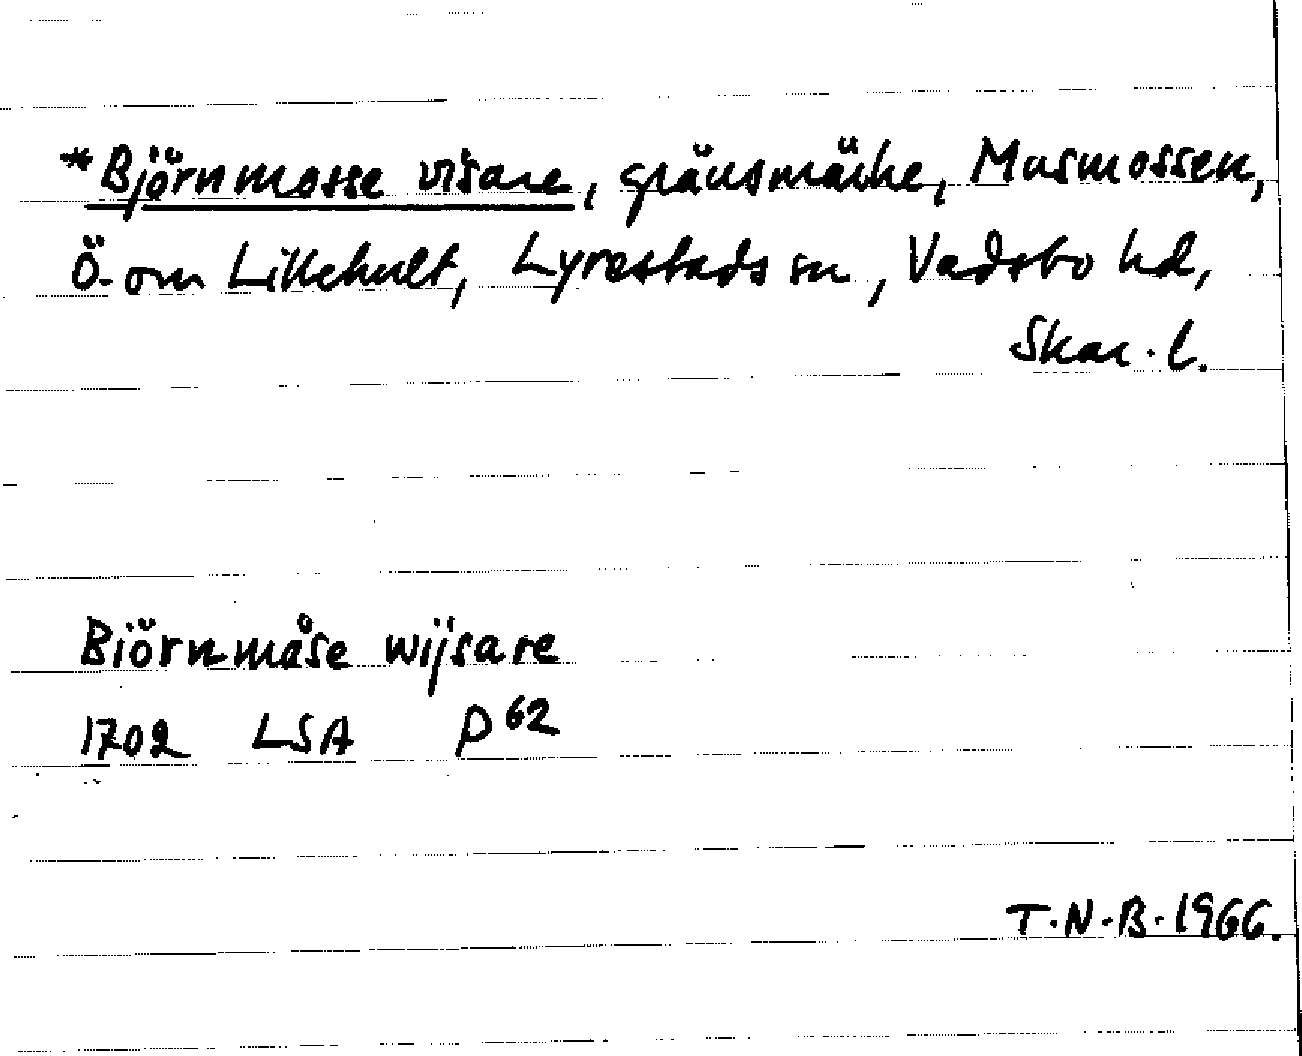 *Björnmosse visare, gränsmärke, Musmossen,
Ö. om Lillehult, Lyrestads sn, Vadsbo hd,
Skar. l.
Biörnmåse wijsare
1702 LSA P 62
T.N.B. 1966.